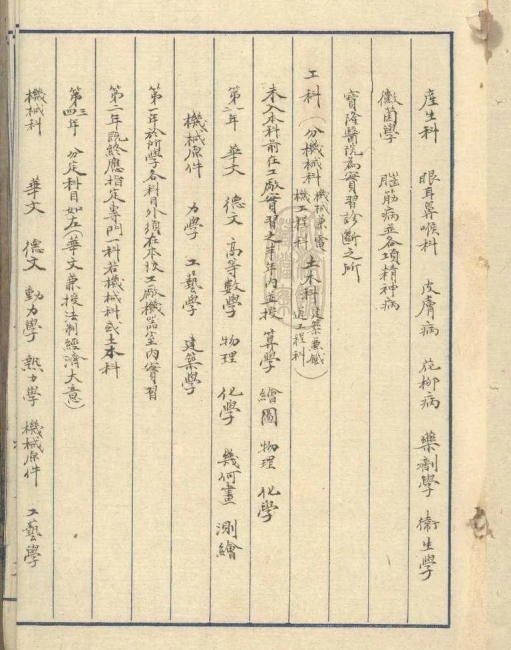 產生科　眼耳鼻喉科　皮膚病　花柳病　藥劑學　衛生學
黴菌學　腦筋病並各項精神病
寶隆醫院為實習診斷之所
工科（分機械科 機械兼電機工程科 土木科 建築兼鐵道工程科）
未入本科前在工廠實習之半年內並授　算學　繪圖　物理　化學
第一二年　華文　德文　高等數學　物理　化學　幾何畫　測繪
機械原件　力學　工藝學　建築學
第一年於所學各科目外須在本校工廠機器室內實習
第二年既終應指定專門一科若機械科或土木科
第三四年　分定科目如左（華文兼授法制經濟大意）
機械科　華文　德文　動力學　熱力學　機械原件　工藝學